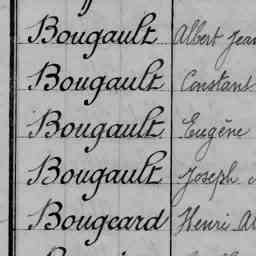 Bougault Albert Jean
Bougault Constant
Bougault Eugène
Bougault Joseph
Bougeard Henri